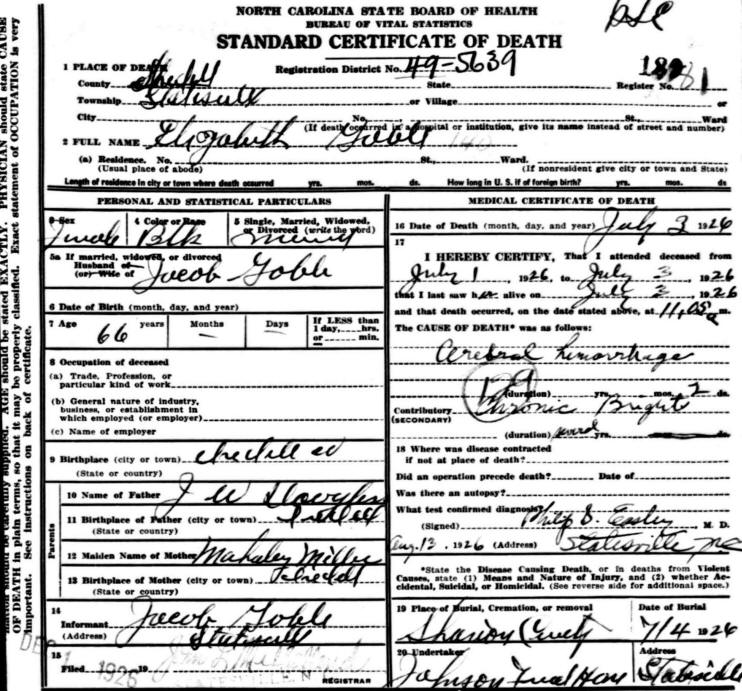 NORTH CAROLINA STATE BOARD OF HEALTH
BUREAU OF VITAL STATISTICS
STANDARD CERTIFICATE OF DEATH
1 PLACE OF DEATH
Registration District No. 49-5639
County Iredell State Register No. 181
Township Statesville or Village or
City No. St., Ward
(If death occurred in a hospital or institution, give its name instead of street and number)
2 FULL NAME Elizabeth
(a) Residence. No. St., Ward.
(Usual place of abode) (If nonresident give city or town and State)
Length of residence in city or town where death occurred yrs. mos. ds. How long in U. S. if of foreign birth? yrs. mos. ds
PERSONAL AND STATISTICAL PARTICULARS
3 Sex 4 Color or Race 5 Single, Married, Widowed, or Divorced (write the word)
Female Blk
5a If married, widowed, or divorced
Husband of
(or) Wife of Jacob
6 Date of Birth (month, day, and year)
7 Age 66 years Months Days If LESS than 1 day, hrs. or min.
8 Occupation of deceased
(a) Trade, Profession, or
particular kind of work
(b) General nature of industry,
business, or establishment in
which employed (or employer)
(c) Name of employer
9 Birthplace (city or town) Iredell co
(State or country)
Parents
10 Name of Father J W
11 Birthplace of Father (city or town) Iredell
(State or country)
12 Maiden Name of Mother Mahaley Miller
13 Birthplace of Mother (city or town) Iredell
(State or country)
14
Informant Jacob
(Address) Statesville
15
Filed 1926 19
REGISTRAR
MEDICAL CERTIFICATE OF DEATH
16 Date of Death (month, day, and year) July 3 1926
17
I HEREBY CERTIFY, That I attended deceased from
July 1, 1926, to July 3, 1926
that I last saw her alive on July 3, 1926
and that death occurred, on the date stated above, at 11,05 a m.
The CAUSE OF DEATH* was as follows:
Cerebral hemorrhage
129
(duration) yrs. mos. 2 ds.
Contributory Chronic Brights
(SECONDARY)
(duration) several yrs.
18 Where was disease contracted
if not at place of death?
Did an operation precede death? Date of
Was there an autopsy?
What test confirmed diagnosis?
(Signed) Philip B. Easley, M. D.
Aug. 13, 1926 (Address) Statesville, NC
*State the Disease Causing Death, or in deaths from Violent
Causes, state (1) Means and Nature of Injury, and (2) whether Ac-
cidental, Suicidal, or Homicidal. (See reverse side for additional space.)
19 Place of Burial, Cremation, or removal Date of Burial
7/4 1926
20 Undertaker Address
Johnson Statesville
PHYSICIAN should state CAUSE
OF DEATH in plain terms, so that it may be properly classified. Exact statement of OCCUPATION is very
important. See instructions on back of certificate.
AGE should be stated EXACTLY.